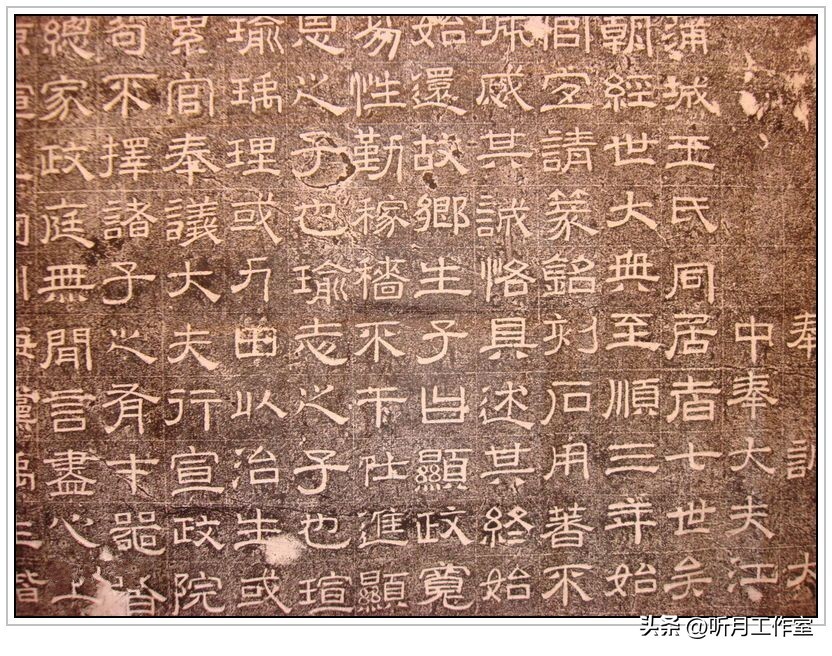 奉訓大
中奉大夫江
浦城王氏同居者七世矣
朝經世大典至順三年始
官定請篆銘刻石用著不
珮威其誠恪具述其終始
始還故鄉生子曰顯政寬
易性勤稼穡不干仕進顯
思之子也瑜志之子也瑄
瑜瑀理或力田以治生或
累官奉議大夫行宣政院
苟不擇諸子之有才器
總家政庭無閒言盡心上
头条 @听月工作室